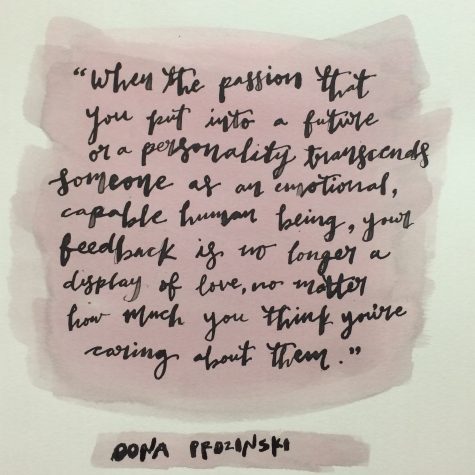 "When the passion that
you put into a future
or a personality transcends
someone as an emotional,
capable human being, your
feedback is no longer a
display of love, no matter
how much you think you're
caring about them."
DONA PROZINSKI